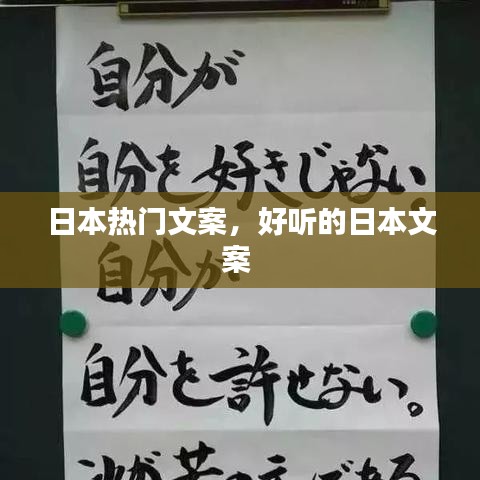 自分が
自分を好きじゃない。
日本热门文案，好听的日本文
案
自分が
自分を許せない。